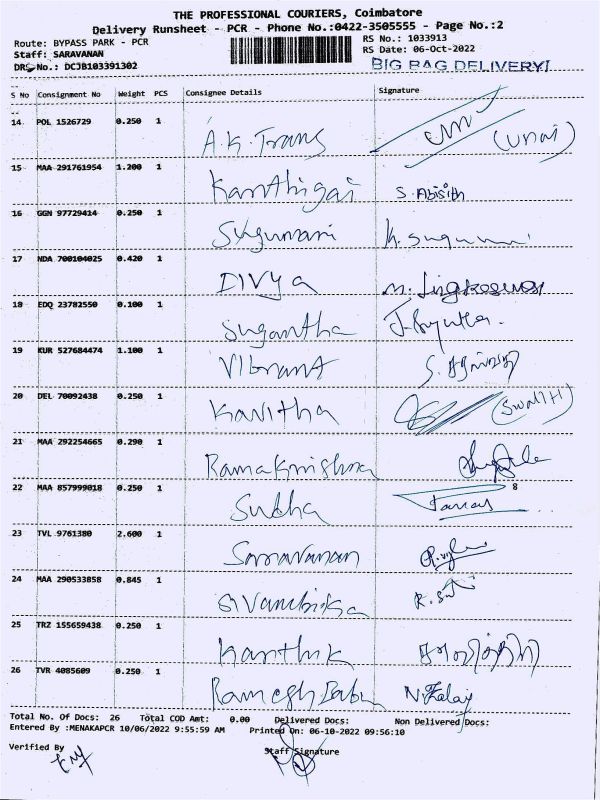 THE PROFESSIONAL COURIERS, Coimbatore
Delivery Runsheet - PCR - Phone No.:0422-3505555 - Page No.:2
Route: BYPASS PARK - PCR RS No.: 1033913
Staff: SARAVANAN RS Date: 06-Oct-2022
DRS No.: DCJB103391302 BIG BAG DELIVERY!
S No Consignment No Weight PCS Consignee Details Signature
14 POL 1526729 0.250 1 A.K. Trans
15 MAA 291761954 1.200 1 Kanthigai S. Abisith
16 GGN 97729414 0.250 1 Sugumari K. Sugu
17 NDA 700104025 0.420 1 DIVya
18 EDQ 23782550 0.100 1 Sugantha
19 KUR 527684474 1.100 1 VIbranT
20 DEL 70092438 0.250 1 Kavitha (SWATHI)
21 MAA 292254665 0.290 1 Ramakrishna
22 MAA 857999018 0.250 1 Subha 8
23 TVL 9761380 2.600 1 Saravanan
24 MAA 290533858 0.845 1 Sivambika
25 TRZ 155659438 0.250 1 Karthik
26 TVR 4085609 0.250 1 Ramesh Babu
Total No. Of Docs: 26 Total COD Amt: 0.00 Delivered Docs: Non Delivered Docs:
Entered By :MENAKAPCR 10/06/2022 9:55:59 AM Printed On: 06-10-2022 09:56:10
Verified By Staff Signature